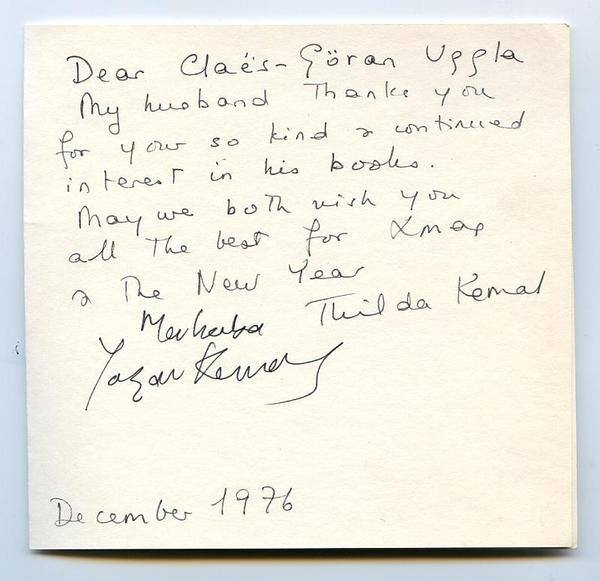 Dear Claës-Göran Uggla
My husband Thanks you
for your so kind & continued
interest in his books.
May we both wish you
all The best for Xmas
& The New Year
Merhaba Thilda Kemal
Yaşar Kemal
December 1976